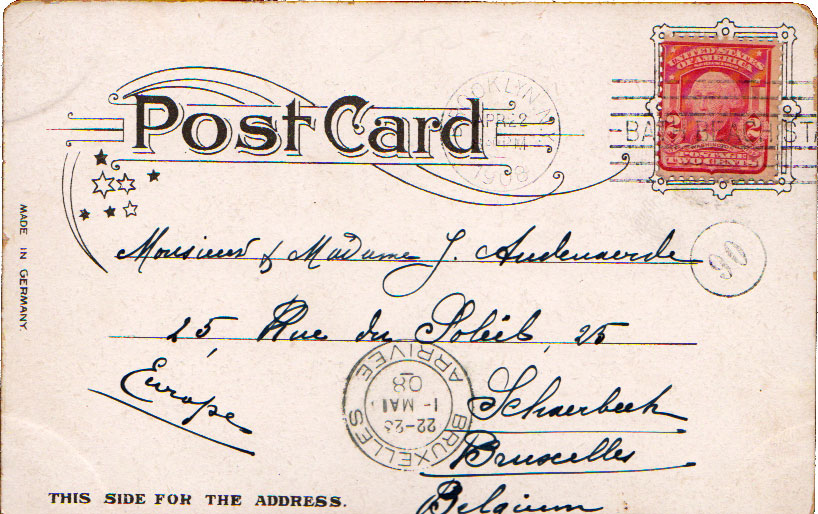 Post Card
BROOKLYN, N.Y.
APR 22
PM
1908
UNITED STATES
OF AMERICA
2 2
POSTAGE
TWO CENTS
BA STA
MADE IN GERMANY.
Monsieur & Madame J. Audenaerde
90
25, Rue du Soleil, 25
Europe
Schaerbeek
Bruxelles
Belgium
BRUXELLES
22-23
1- MAI
08
ARRIVEE
THIS SIDE FOR THE ADDRESS.